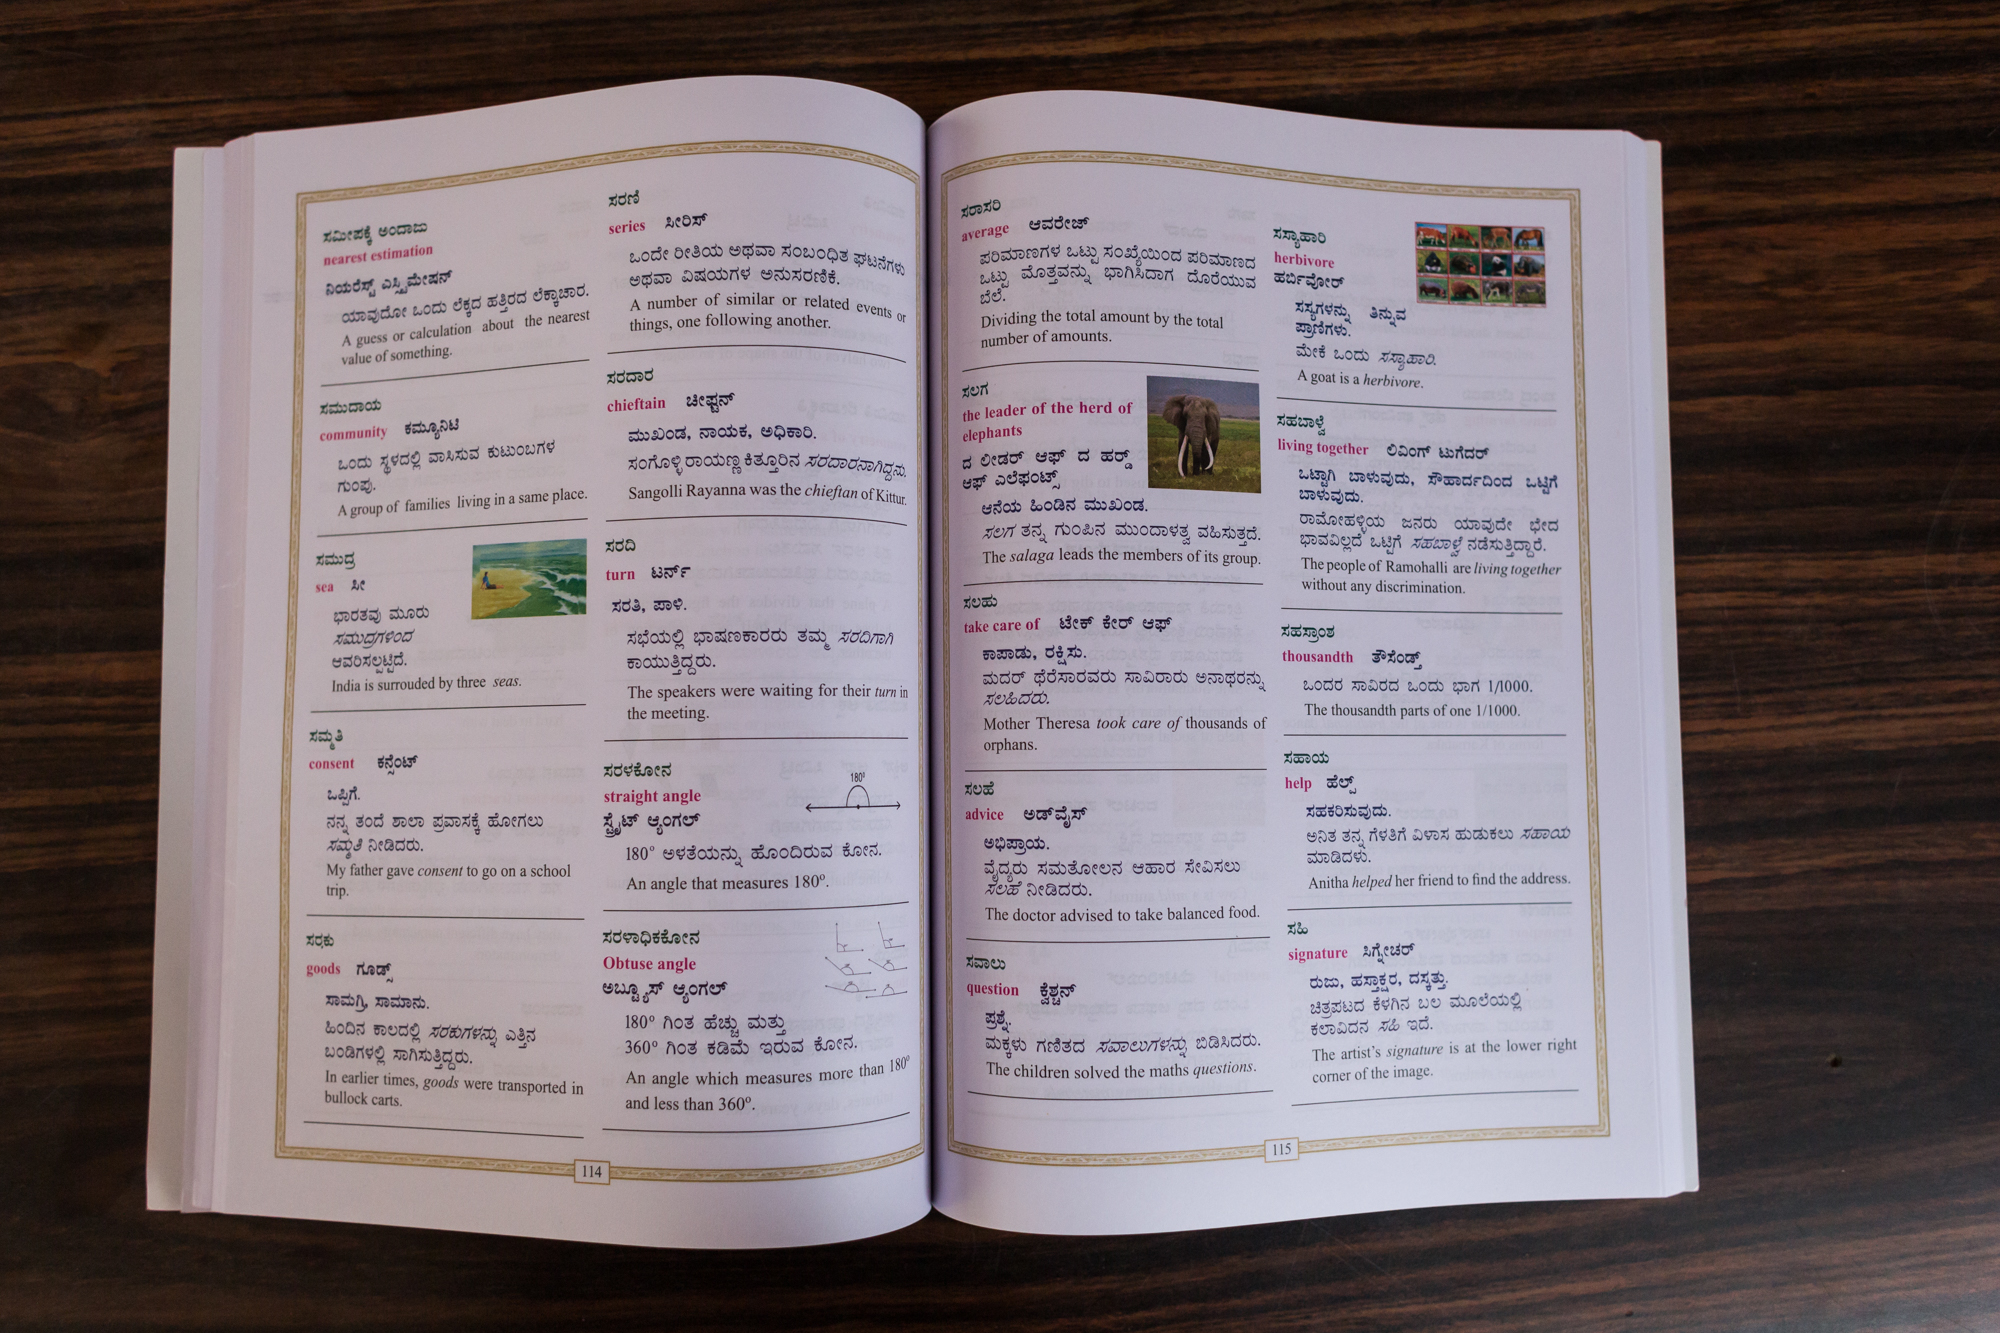 ಸಮೀಪಕ್ಕೆ ಅಂದಾಜು
nearest estimation
ನಿಯರೆಸ್ಟ್ ಎಸ್ಟಿಮೇಷನ್
ಯಾವುದೋ ಒಂದು ಲೆಕ್ಕದ ಹತ್ತಿರದ ಲೆಕ್ಕಾಚಾರ.
A guess or calculation about the nearest
value of something.
ಸಮುದಾಯ
community ಕಮ್ಯೂನಿಟಿ
ಒಂದು ಸ್ಥಳದಲ್ಲಿ ವಾಸಿಸುವ ಕುಟುಂಬಗಳ
ಗುಂಪು.
A group of families living in a same place.
ಸಮುದ್ರ
sea ಸೀ
ಭಾರತವು ಮೂರು
ಸಮುದ್ರಗಳಿಂದ
ಆವರಿಸಲ್ಪಟ್ಟಿದೆ.
India is surrouded by three seas.
ಸಮ್ಮತಿ
consent ಕನ್ಸೆಂಟ್
ಒಪ್ಪಿಗೆ.
ನನ್ನ ತಂದೆ ಶಾಲಾ ಪ್ರವಾಸಕ್ಕೆ ಹೋಗಲು
ಸಮ್ಮತಿ ನೀಡಿದರು.
My father gave consent to go on a school
trip.
ಸರಕು
goods ಗೂಡ್ಸ್
ಸಾಮಗ್ರಿ, ಸಾಮಾನು.
ಹಿಂದಿನ ಕಾಲದಲ್ಲಿ ಸರಕುಗಳನ್ನು ಎತ್ತಿನ
ಬಂಡಿಗಳಲ್ಲಿ ಸಾಗಿಸುತ್ತಿದ್ದರು.
In earlier times, goods were transported in
bullock carts.
ಸರಣಿ
series ಸೀರಿಸ್
ಒಂದೇ ರೀತಿಯ ಅಥವಾ ಸಂಬಂಧಿತ ಘಟನೆಗಳು
ಅಥವಾ ವಿಷಯಗಳ ಅನುಸರಣಿಕೆ.
A number of similar or related events or
things, one following another.
ಸರದಾರ
chieftain ಚೀಫ್ಟನ್
ಮುಖಂಡ, ನಾಯಕ, ಅಧಿಕಾರಿ.
ಸಂಗೊಳ್ಳಿ ರಾಯಣ್ಣ ಕಿತ್ತೂರಿನ ಸರದಾರನಾಗಿದ್ದನು.
Sangolli Rayanna was the chieftan of Kittur.
ಸರದಿ
turn ಟರ್ನ್
ಸರತಿ, ಪಾಳಿ.
ಸಭೆಯಲ್ಲಿ ಭಾಷಣಕಾರರು ತಮ್ಮ ಸರದಿಗಾಗಿ
ಕಾಯುತ್ತಿದ್ದರು.
The speakers were waiting for their turn in
the meeting.
ಸರಳಕೋನ
straight angle
ಸ್ಟ್ರೈಟ್ ಆ್ಯಂಗಲ್
180⁰
180° ಅಳತೆಯನ್ನು ಹೊಂದಿರುವ ಕೋನ.
An angle that measures 180⁰.
ಸರಳಾಧಿಕಕೋನ
Obtuse angle
ಅಬ್ಟ್ಯೂಸ್ ಆ್ಯಂಗಲ್
180° ಗಿಂತ ಹೆಚ್ಚು ಮತ್ತು
360° ಗಿಂತ ಕಡಿಮೆ ಇರುವ ಕೋನ.
An angle which measures more than 180⁰
and less than 360⁰.
114
ಸರಾಸರಿ
average ಆವರೇಜ್
ಪರಿಮಾಣಗಳ ಒಟ್ಟು ಸಂಖ್ಯೆಯಿಂದ ಪರಿಮಾಣದ
ಒಟ್ಟು ಮೊತ್ತವನ್ನು ಭಾಗಿಸಿದಾಗ ದೊರೆಯುವ
ಬೆಲೆ.
Dividing the total amount by the total
number of amounts.
ಸಲಗ
the leader of the herd of
elephants
ದ ಲೀಡರ್ ಆಫ್ ದ ಹರ್ಡ್
ಆಫ್ ಎಲೆಫಂಟ್ಸ್
ಆನೆಯ ಹಿಂಡಿನ ಮುಖಂಡ.
ಸಲಗ ತನ್ನ ಗುಂಪಿನ ಮುಂದಾಳತ್ವ ವಹಿಸುತ್ತದೆ.
The salaga leads the members of its group.
ಸಲಹು
take care of ಟೇಕ್ ಕೇರ್ ಆಫ್
ಕಾಪಾಡು, ರಕ್ಷಿಸು.
ಮದರ್ ಥೆರೆಸಾರವರು ಸಾವಿರಾರು ಅನಾಥರನ್ನು
ಸಲಹಿದರು.
Mother Theresa took care of thousands of
orphans.
ಸಲಹೆ
advice ಅಡ್‌ವೈಸ್
ಅಭಿಪ್ರಾಯ.
ವೈದ್ಯರು ಸಮತೋಲನ ಆಹಾರ ಸೇವಿಸಲು
ಸಲಹೆ ನೀಡಿದರು.
The doctor advised to take balanced food.
ಸವಾಲು
question ಕ್ವೆಶ್ಚನ್
ಪ್ರಶ್ನೆ.
ಮಕ್ಕಳು ಗಣಿತದ ಸವಾಲುಗಳನ್ನು ಬಿಡಿಸಿದರು.
The children solved the maths questions.
ಸಸ್ಯಾಹಾರಿ
herbivore
ಹರ್ಬಿವೋರ್
ಸಸ್ಯಗಳನ್ನು ತಿನ್ನುವ
ಪ್ರಾಣಿಗಳು.
ಮೇಕೆ ಒಂದು ಸಸ್ಯಾಹಾರಿ.
A goat is a herbivore.
ಸಹಬಾಳ್ವೆ
living together ಲಿವಿಂಗ್ ಟುಗೆದರ್
ಒಟ್ಟಾಗಿ ಬಾಳುವುದು, ಸೌಹಾರ್ದದಿಂದ ಒಟ್ಟಿಗೆ
ಬಾಳುವುದು.
ರಾಮೋಹಳ್ಳಿಯ ಜನರು ಯಾವುದೇ ಭೇದ
ಭಾವವಿಲ್ಲದೆ ಒಟ್ಟಿಗೆ ಸಹಬಾಳ್ವೆ ನಡೆಸುತ್ತಿದ್ದಾರೆ.
The people of Ramohalli are living together
without any discrimination.
ಸಹಸ್ರಾಂಶ
thousandth ತೌಸೆಂಡ್ತ್
ಒಂದರ ಸಾವಿರದ ಒಂದು ಭಾಗ 1/1000.
The thousandth parts of one 1/1000.
ಸಹಾಯ
help ಹೆಲ್ಪ್
ಸಹಕರಿಸುವುದು.
ಅನಿತ ತನ್ನ ಗೆಳತಿಗೆ ವಿಳಾಸ ಹುಡುಕಲು ಸಹಾಯ
ಮಾಡಿದಳು.
Anitha helped her friend to find the address.
ಸಹಿ
signature ಸಿಗ್ನೇಚರ್
ರುಜು, ಹಸ್ತಾಕ್ಷರ, ದಸ್ಕತ್ತು.
ಚಿತ್ರಪಟದ ಕೆಳಗಿನ ಬಲ ಮೂಲೆಯಲ್ಲಿ
ಕಲಾವಿದನ ಸಹಿ ಇದೆ.
The artist's signature is at the lower right
corner of the image.
115